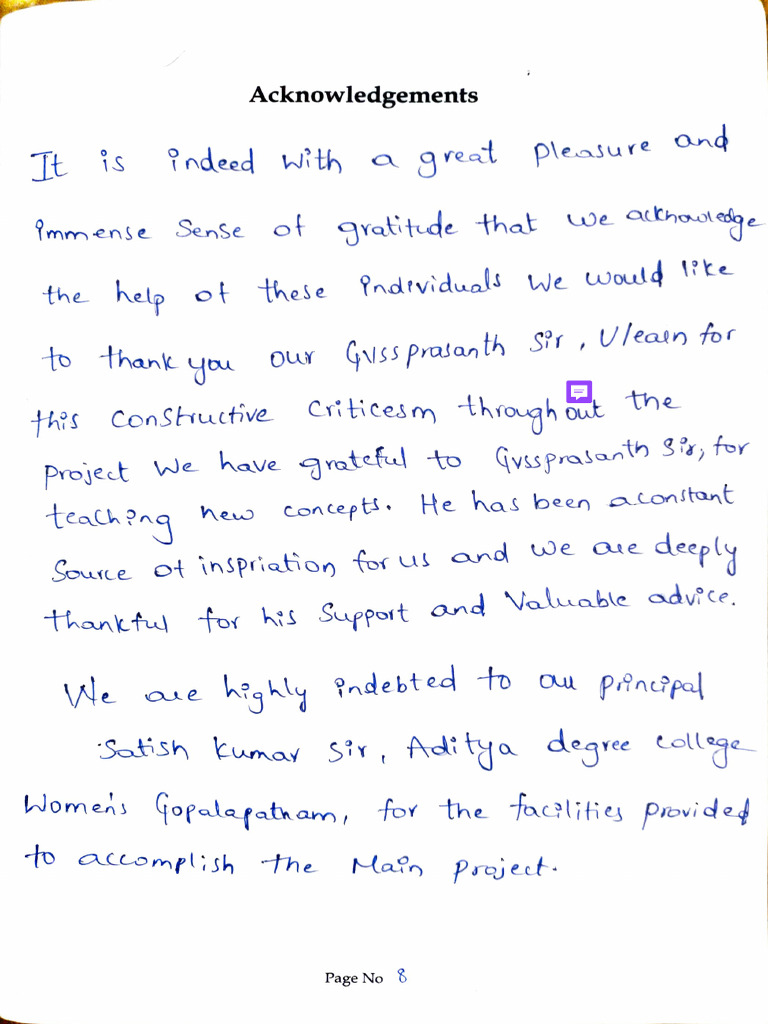 Acknowledgements
It is indeed with a great pleasure and
immense sense of gratitude that we acknowledge
the help of these individuals we would like
to thank you our Gvssprasanth Sir, V/earn for
this constructive criticesm through out the
project we have grateful to Gvssprasanth Sir, for
teaching new concepts. He has been a constant
Source of inspriation for us and we are deeply
thankful for his Support and Valuable advice.
We are highly indebted to our principal
Satish Kumar Sir, Aditya degree college
Women's Gopalapatnam, for the facilities provided
to accomplish the Main project.
Page No 8